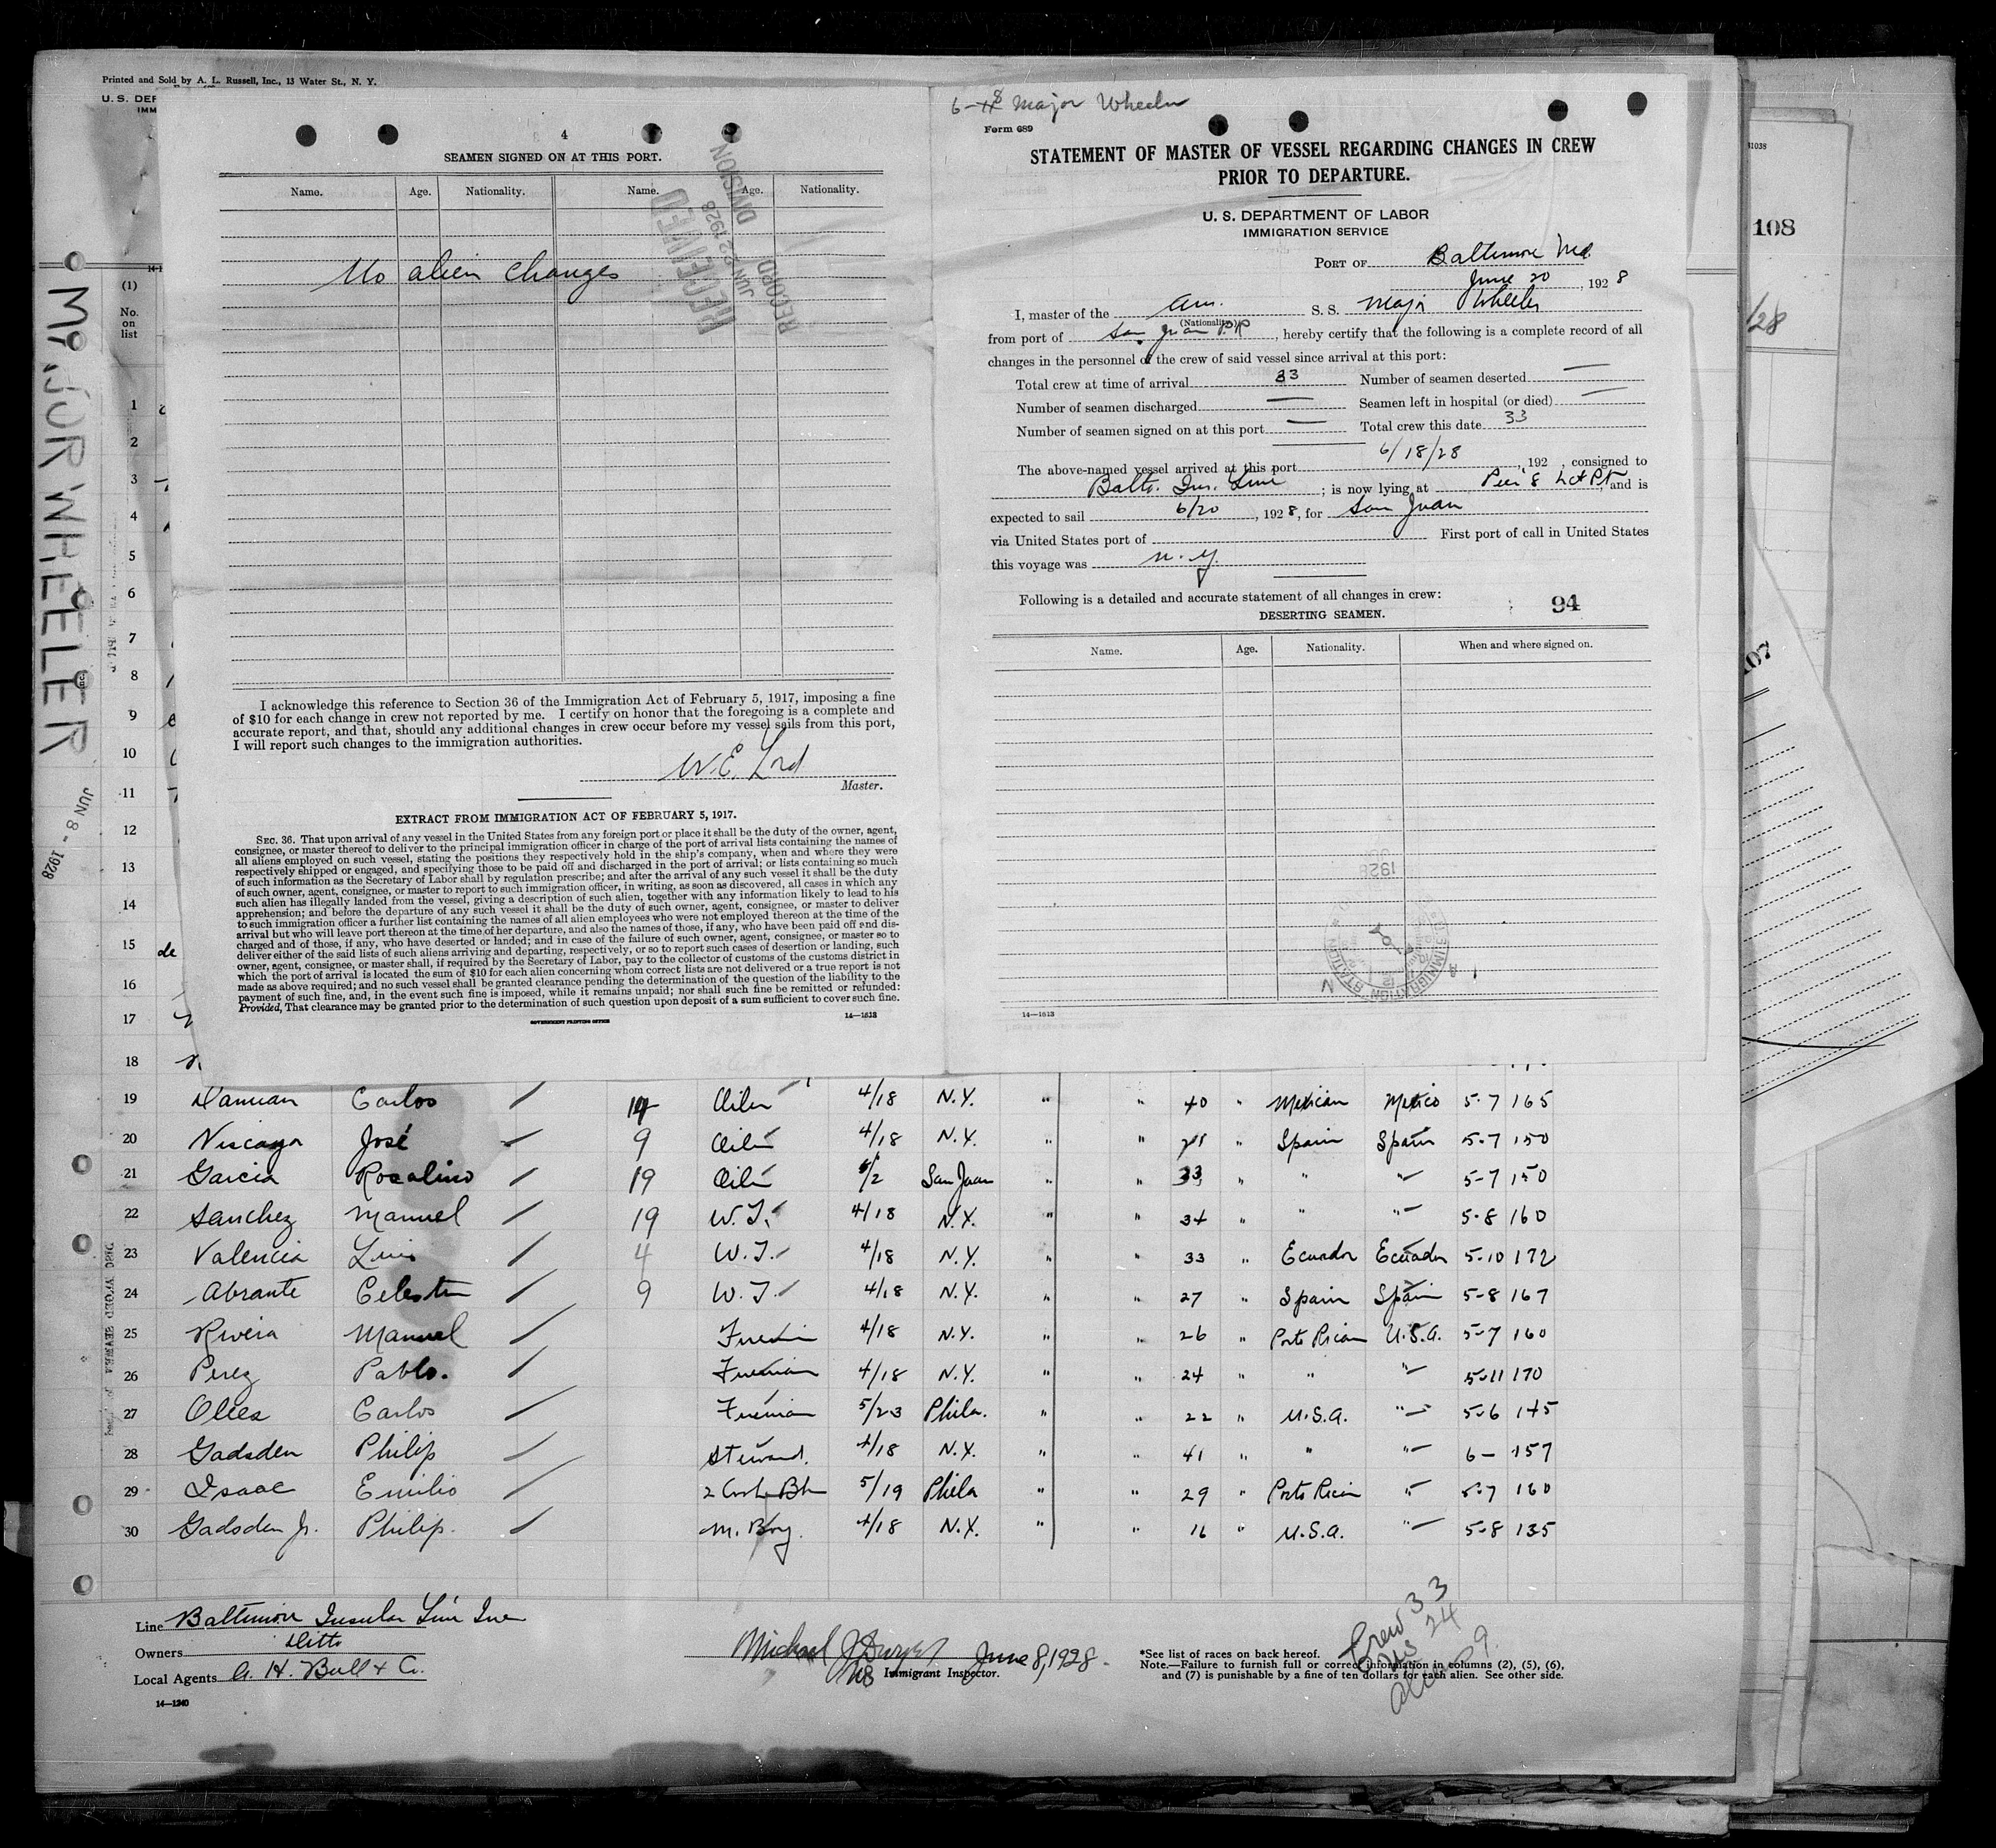 Printed and Sold by A. L. Russell, Inc., 13 Water St., N. Y.
U. S. DEP
IMM
MAJOR WHEELER JUN 8 - 1928
(1)
No.
on
list
1
2
3
4
5
6
7
8
9
10
11
12
13
14
15 de
16
17
18
4
SEAMEN SIGNED ON AT THIS PORT.
Name. Age. Nationality. Name. Age. Nationality.
RECEIVED
JUN 22 1928
RECORD DIVISION
No alien changes
I acknowledge this reference to Section 36 of the Immigration Act of February 5, 1917, imposing a fine
of $10 for each change in crew not reported by me. I certify on honor that the foregoing is a complete and
accurate report, and that, should any additional changes in crew occur before my vessel sails from this port,
I will report such changes to the immigration authorities.
W. E. Lord
Master.
EXTRACT FROM IMMIGRATION ACT OF FEBRUARY 5, 1917.
SEC. 36. That upon arrival of any vessel in the United States from any foreign port or place it shall be the duty of the owner, agent,
consignee, or master thereof to deliver to the principal immigration officer in charge of the port of arrival lists containing the names of
all aliens employed on such vessel, stating the positions they respectively hold in the ship's company, when and where they were
respectively shipped or engaged, and specifying those to be paid off and discharged in the port of arrival; or lists containing so much
of such information as the Secretary of Labor shall by regulation prescribe; and after the arrival of any such vessel it shall be the duty
of such owner, agent, consignee, or master to report to such immigration officer, in writing, as soon as discovered, all cases in which any
such alien has illegally landed from the vessel, giving a description of such alien, together with any information likely to lead to his
apprehension; and before the departure of any such vessel it shall be the duty of such owner, agent, consignee, or master to deliver
to such immigration officer a further list containing the names of all alien employees who were not employed thereon at the time of the
arrival but who will leave port thereon at the time of her departure, and also the names of those, if any, who have been paid off and dis-
charged and of those, if any, who have deserted or landed; and in case of the failure of such owner, agent, consignee, or master so to
deliver either of the said lists of such aliens arriving and departing, respectively, or so to report such cases of desertion or landing, such
owner, agent, consignee, or master shall, if required by the Secretary of Labor, pay to the collector of customs of the customs district in
which the port of arrival is located the sum of $10 for each alien concerning whom correct lists are not delivered or a true report is not
made as above required; and no such vessel shall be granted clearance pending the determination of the question of the liability to the
payment of such fine, and, in the event such fine is imposed, while it remains unpaid; nor shall such fine be remitted or refunded:
Provided, That clearance may be granted prior to the determination of such question upon deposit of a sum sufficient to cover such fine.
GOVERNMENT PRINTING OFFICE 14—1513
6-8 Major Wheeler
Form 689
STATEMENT OF MASTER OF VESSEL REGARDING CHANGES IN CREW
PRIOR TO DEPARTURE.
U. S. DEPARTMENT OF LABOR
IMMIGRATION SERVICE
PORT OF Baltimore Md.
June 20, 1928
I, master of the Am. S. S. Major Wheeler
(Nationality)
from port of San Juan P.R., hereby certify that the following is a complete record of all
changes in the personnel of the crew of said vessel since arrival at this port:
Total crew at time of arrival 33 Number of seamen deserted —
Number of seamen discharged — Seamen left in hospital (or died) —
Number of seamen signed on at this port — Total crew this date 33
The above-named vessel arrived at this port 6/18/28, 192 , consigned to
Balto. Ins. Line; is now lying at Pier 8 Lct Pt, and is
expected to sail 6/20, 1928, for San Juan
via United States port of First port of call in United States
this voyage was N. Y.
Following is a detailed and accurate statement of all changes in crew:
94
DESERTING SEAMEN.
Name. Age. Nationality. When and where signed on.
14—1513
31038
108
/28
107
19 Damian Carlos 14 Oiler 4/18 N.Y. " " 40 " Mexican Mexico 5-7 165
20 Niscaya José 9 Oiler 4/18 N.Y. " " " Spain Spain 5-7 150
21 Garcia Rosalino 19 Oiler 6/2 San Juan " " 33 " " " 5-7 150
22 Sanchez Manuel 19 W.T. 4/18 N.Y. " " 34 " " " 5-8 160
23 Valencia Luis 4 W.T. 4/18 N.Y. " " 33 " Ecuador Ecuador 5-10 172
24 Abrante Celestin 9 W.T. 4/18 N.Y. " " 27 " Spain Spain 5-8 167
25 Rivera Manuel Fireman 4/18 N.Y. " " 26 " Porto Rican U.S.A. 5-7 160
26 Perez Pablo. Fireman 4/18 N.Y. " " 24 " " " 5-11 170
27 Carlos Fireman 5/23 Phila. " " 22 " U.S.A. " 5-6 145
28 Gadsden Philip Steward. 4/18 N.Y. " " 41 " " " 6- 157
29 Isaac Emilio 2 Cook Bk 5/19 Phila " " 29 " Porto Rican " 5-7 160
30 Gadsden Jr. Philip. M. Boy. 4/18 N.Y. " " 16 " U.S.A. " 5-8 135
Line Baltimore Insular Line Inc
Owners Ditto
Local Agents A. H. Bull & Co.
14—1240
Michael J June 8, 1928.
Immigrant Inspector.
*See list of races on back hereof.
Note.—Failure to furnish full or correct information in columns (2), (5), (6),
and (7) is punishable by a fine of ten dollars for each alien. See other side.
Crew 33
US 24
Aliens 9